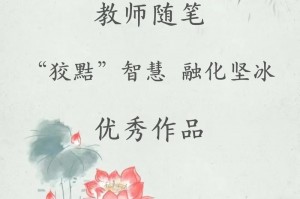 教师随笔
“狡點”智慧 融化坚冰
优秀作品